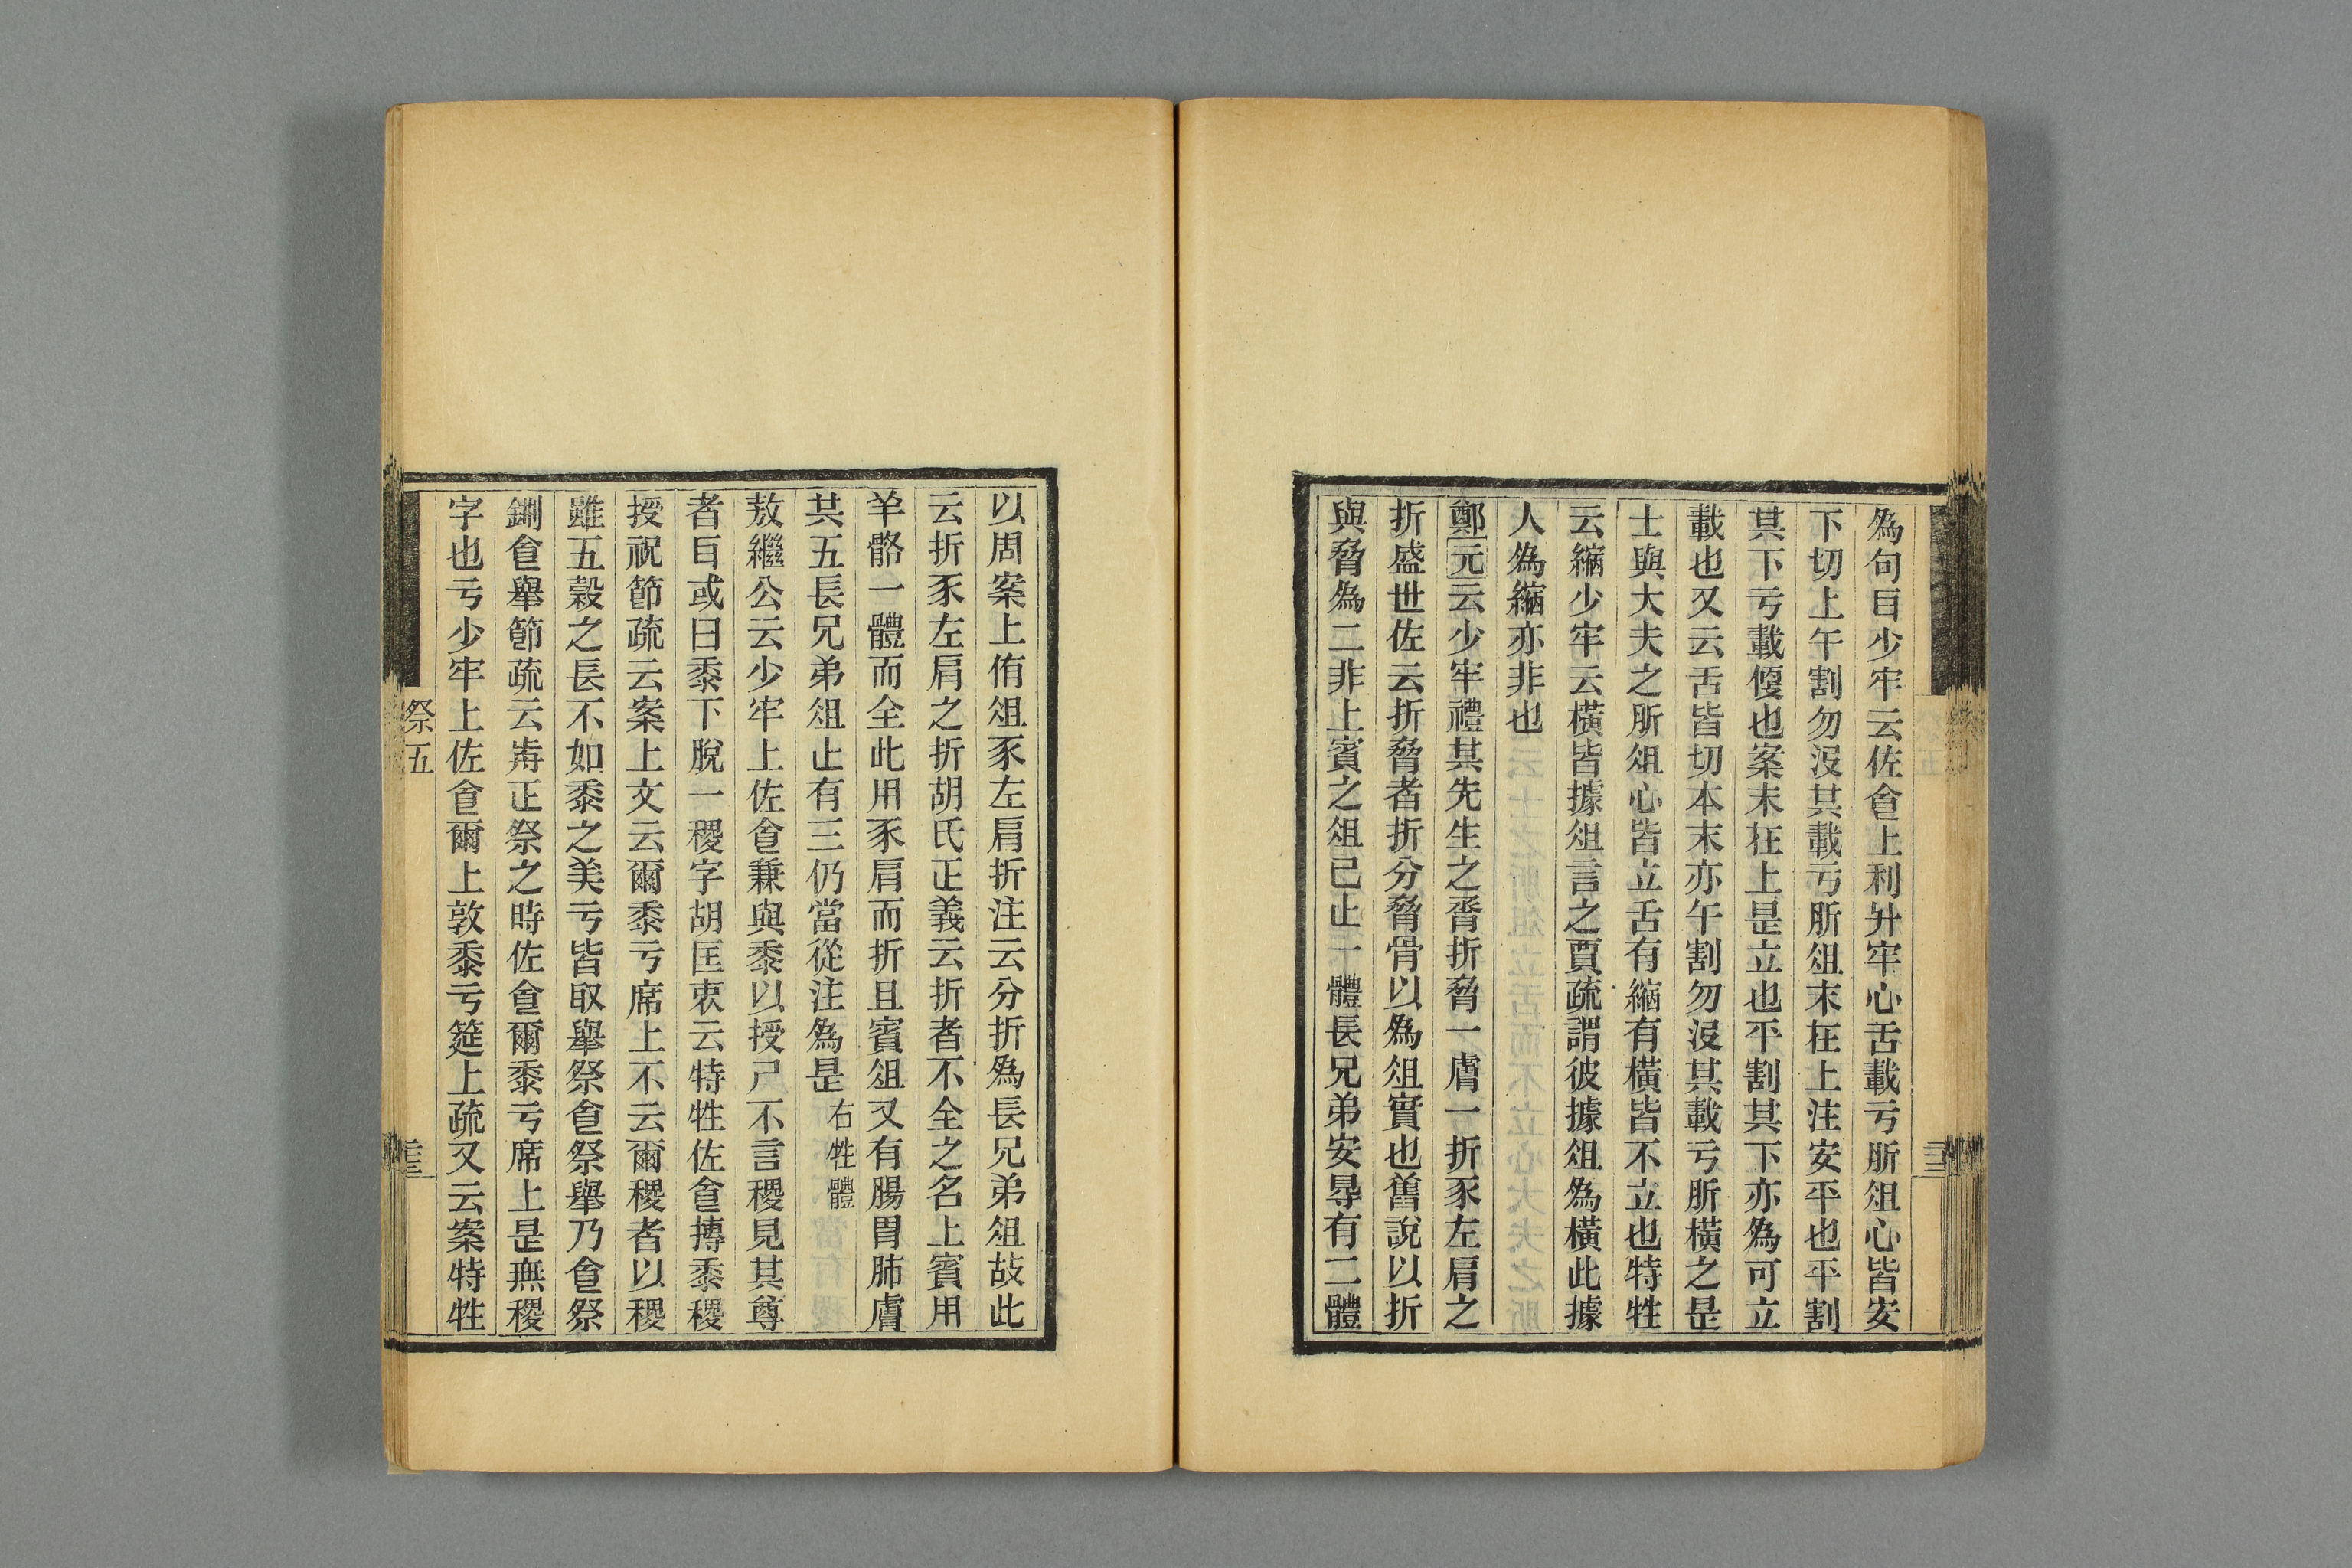 為句㠯少牢云佐㑹上利升牢心舌載亏肵俎心皆安
下切上午割勿沒其載亏肵俎末在上注安平也平割
其下亏載偃也案末在上是立也平割其下亦為可立
載也又云舌皆切本末亦午割勿沒其載亏肵橫之是
士與大夫之肵俎心皆立舌有縮有橫皆不立也特牲
云縮少牢云橫皆據俎言之賈疏謂彼據俎為橫此據
人為縮亦非也
鄭元云少牢禮其先生之脀折脅一膚一折豕左肩之
折盛世佐云折脅者折分脅骨以為俎實也舊說以折
與脅為二非上賓之俎已止一體長兄弟安㝵有二體
以周案上侑俎豕左肩折注云分折為長兄弟俎故此
云折豕左肩之折胡氏正義云折者不全之名上賓用
羊骼一體而全此用豕肩而折且賓俎又有腸胃肺膚
其五長兄弟俎止有三仍當從注為是 右牲體
敖繼公云少牢上佐㑹兼與黍以授尸不言稷見其尊
者㠯或曰黍下脫一稷字胡匡衷云特牲佐㑹摶黍稷
授祝節疏云案上文云爾黍亏席上不云爾稷者以稷
雖五穀之長不如黍之美亏皆取舉祭㑹祭舉乃㑹祭
鉶㑹舉節疏云歬正祭之時佐㑹爾黍亏席上是無稷
字也亏少牢上佐㑹爾上敦黍亏筵上疏又云案特牲
祭五